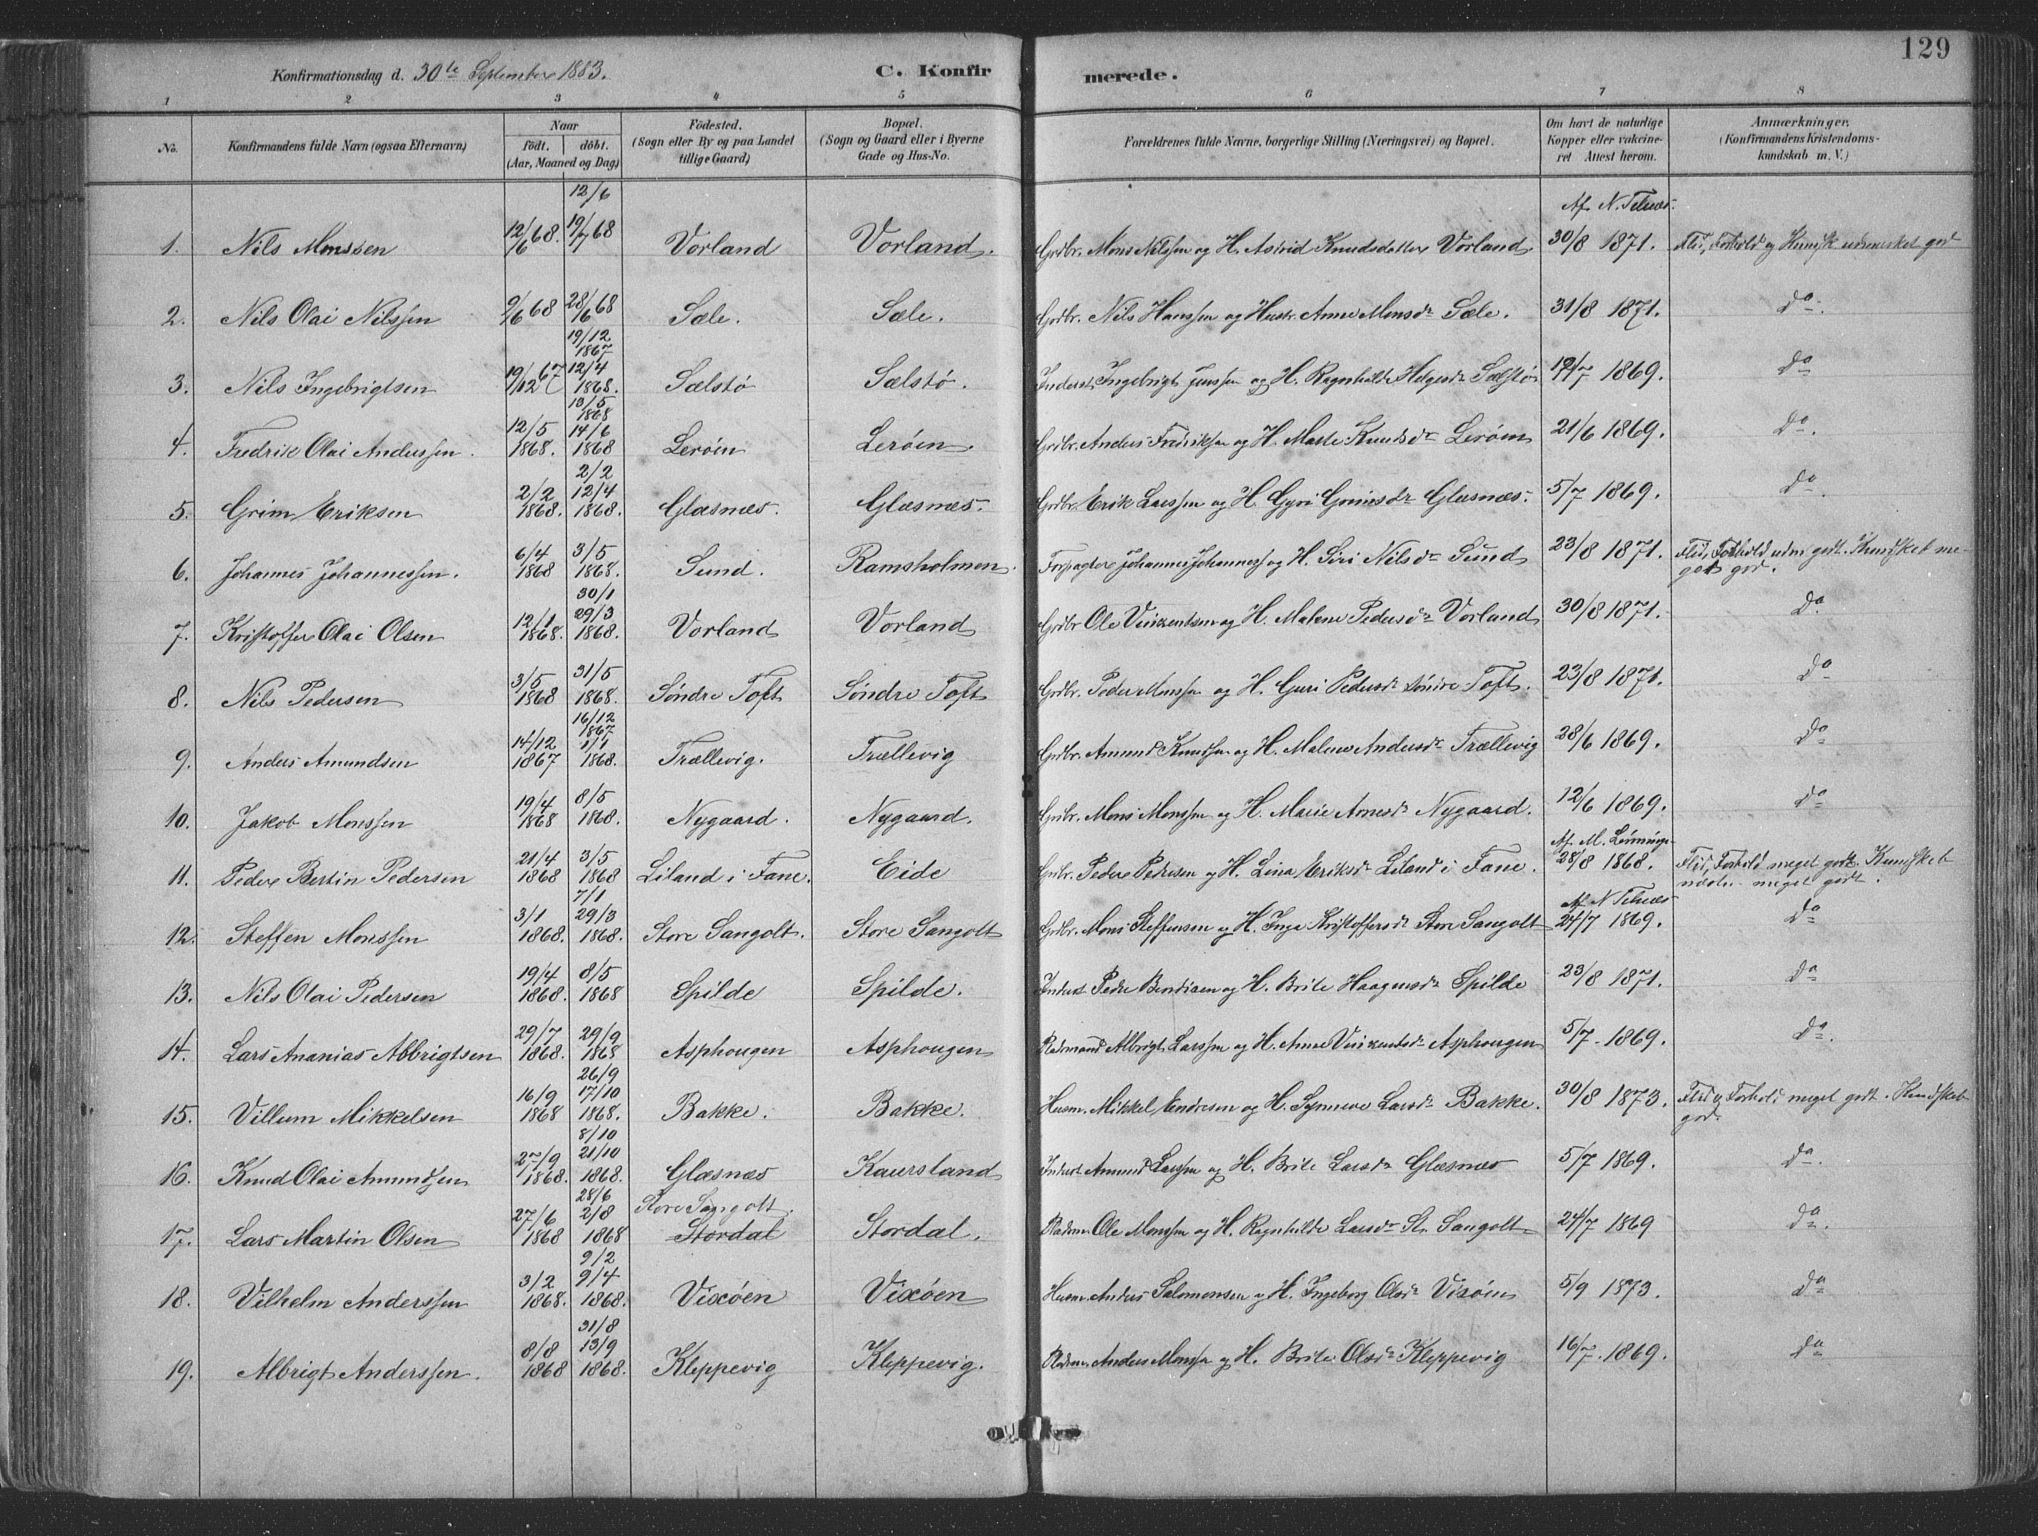 129
Konfirmationsdag d. 30te September 1883. C. Konfirmerede.
1 2 3 4 5 6 7 8
No. Konfirmandens fulde Navn (ogsaa Efternavn) Naar födt. döbt. (Aar, Maaned og Dag) Födested. (Sogn eller By og paa Landet tillige Gaard) Bopæl. (Sogn og Gaard eller i Byerne Gade og Hus-No. Forældrenes fulde Navne, borgerlige Stilling (Næringsvei) og Bopæl. Om havt de naturlige Kopper eller vakcineret Attest herom. Anmærkninger. (Konfirmandens Kristendomskundskab m. V.)
12/6 Af N. Telnæs.
1. Nils Monssen 12/6 68. 19/7 68 Vorland Vorland. Grdbr. Mons Nilssen og H. Astrid Knudsdatter Vorland 30/8 1871. Flid, Forhold og Kunsk udmærket god
2. Nils Olai Nilssen 9/6 68 28/6 68 Sæle. Sæle. Grdbr. Nils Hanssen og Hustr. Anne Monsdr Sæle. 31/8 1871. do
3. Nils Ingebrigtsen 19/12 67 19/12 1867 12/4 1868. Sælstö Sælstö. Inderst Ingebrigt Jenssen og H. Ragnhilde Helgesdr Sælstö 1869. do
4. Fredrik Olai Anderssen. 12/5 1868. 13/5 1868 14/6 1868 Leröen Leröen. Grdbr. Anders Fredriksen og H. Marte Knudsdr Leröen 21/6 1869. do
5. Grim Eriksen 2/2 1868. 2/2 12/4 1868. Glæsnæs. Glæsnæs. Grdbr. Erik Larssen og H. Gyri Grimsdr Glæsnæs. 5/7 1869. do
6. Johannes Johannessen. 6/4 1868 3/5 1868. Sund. Ramsholmen. Forpagter Johannes Johanness og H. Siri Nilsdr Sund 23/8 1871. Flid, Forhold udm godt. Kundskab meget god.
7. Kristoffer Olai Olsen 12/1 1868. 30/1 29/3 1868. Vorland Vorland Grdbr Ole Vinzentsen og H. Malene Pedersdr Vorland 30/8 1871. do
8. Nils Pedersen 3/5 1868 31/5 1868. Söndre Toft Söndre Toft Grdbr. Peder Monssen og H. Guri Pedersdr Söndre Toft. 23/8 1871. do
9. Anders Amundsen 14/12 1867 16/12 1867 1/1 1868. Trællevig. Trællevig Grdbr. Amund Knudsen og H. Malene Andersdr Trællevig 28/6 1869. do
10. Jakob Monssen 19/4 1868 8/5 1868. Nygaard. Nygaard. Grdbr. Mons Monssen og H. Marie Arnesdr Nygaard. 12/6 1869. do
Af M. Lönninge
11. Peder Bertin Pedersen 21/4 1868 3/5 1868 Liland i Fane. Eide Grdbr. Peder Pedersen og H. Lina Eriksdr Liland i Fane. 28/8 1868. Flid, Forhold meget godt. Kundskab meget godt.
Af N Telnæs
12. Steffen Monssen 3/1 1868. 7/1 29/3 1868. Store Sangolt. Store Sangolt Grdbr. Mons Steffensen og H. Inga Kristoffersdr Store Sangolt 24/7 1869. do
13. Nils Olai Pedersen 19/4 1868. 8/5 1868 Spilde Spilde. Inderst Peder Bendixen og H. Brite Haagensdr Spilde 23/8 1871. do
14. Lars Ananias Albrigtsen 29/7 1868. 29/9 1868 Asphougen Asphougen Radmand Albrigt Larssen og H. Anne Vinzentsdr Asphougen 5/7 1869. do.
15. Villum Mikkelsen 16/9 1868 26/9 17/10 1868. Bakke. Bakke. Husm. Mikkel Endresen og H. Synneve Larsdr Bakke. 30/8 1873. Flid og Forhold meget godt. Kundskab god.
16. Knud Olai Amundsen 27/9 1868. 8/10 21/10 1868. Glæsnæs Kaursland Inderst Amund Larssen og H. Brite Larsdr Glæsnæs 5/7 1869. do.
17. Lars Martin Olsen 27/6 1868 28/6 2/8 1868 Store Sangolt. Stordal Stordal. Radm. Ole Monssen og H. Ragnhilde Larsdr St. Sangolt 24/7 1869 do.
18. Vilhelm Anderssen 3/2 1868. 9/2 9/4 1868. Vixöen Vixöen Husm. Anders Salomonsen og H. Ingeborg Olsdr Vixöen 5/9 1873. do
19. Albrigt Anderssen. 8/8 1868 31/8 13/9 1868. Kleppevig Kleppevig. Radm. Anders Monssen og H. Brite Olsdr Kleppevig 16/7. 1869. do